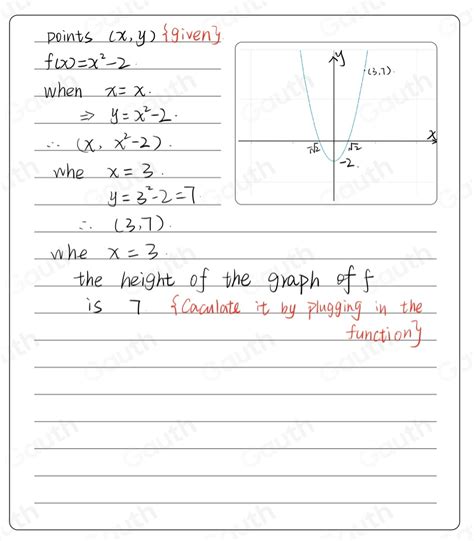 points (x, y) {given}
f(x)=x²-2
when x = x.
⇒ y=x²-2.
∴ (x, x²-2).
whe x = 3.
y = 3²-2=7.
∴ (3,7).
whe x = 3.
the height of the graph of f
is 7 {Caculate it by plugging in the
function}
y
(3,7).
x
-√2
√2
-2.
Gauth